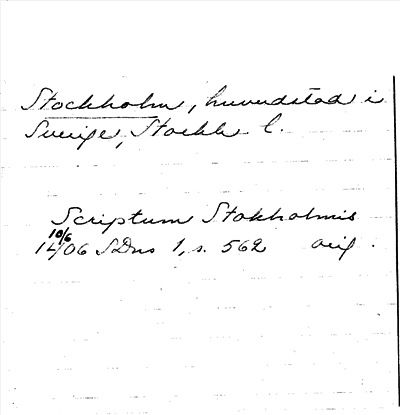 Stockholm, huvudstad i
Sverige, Stockh l.
Scriptum Stokholmis
10/6
1406 SDns 1, s. 562 orig.